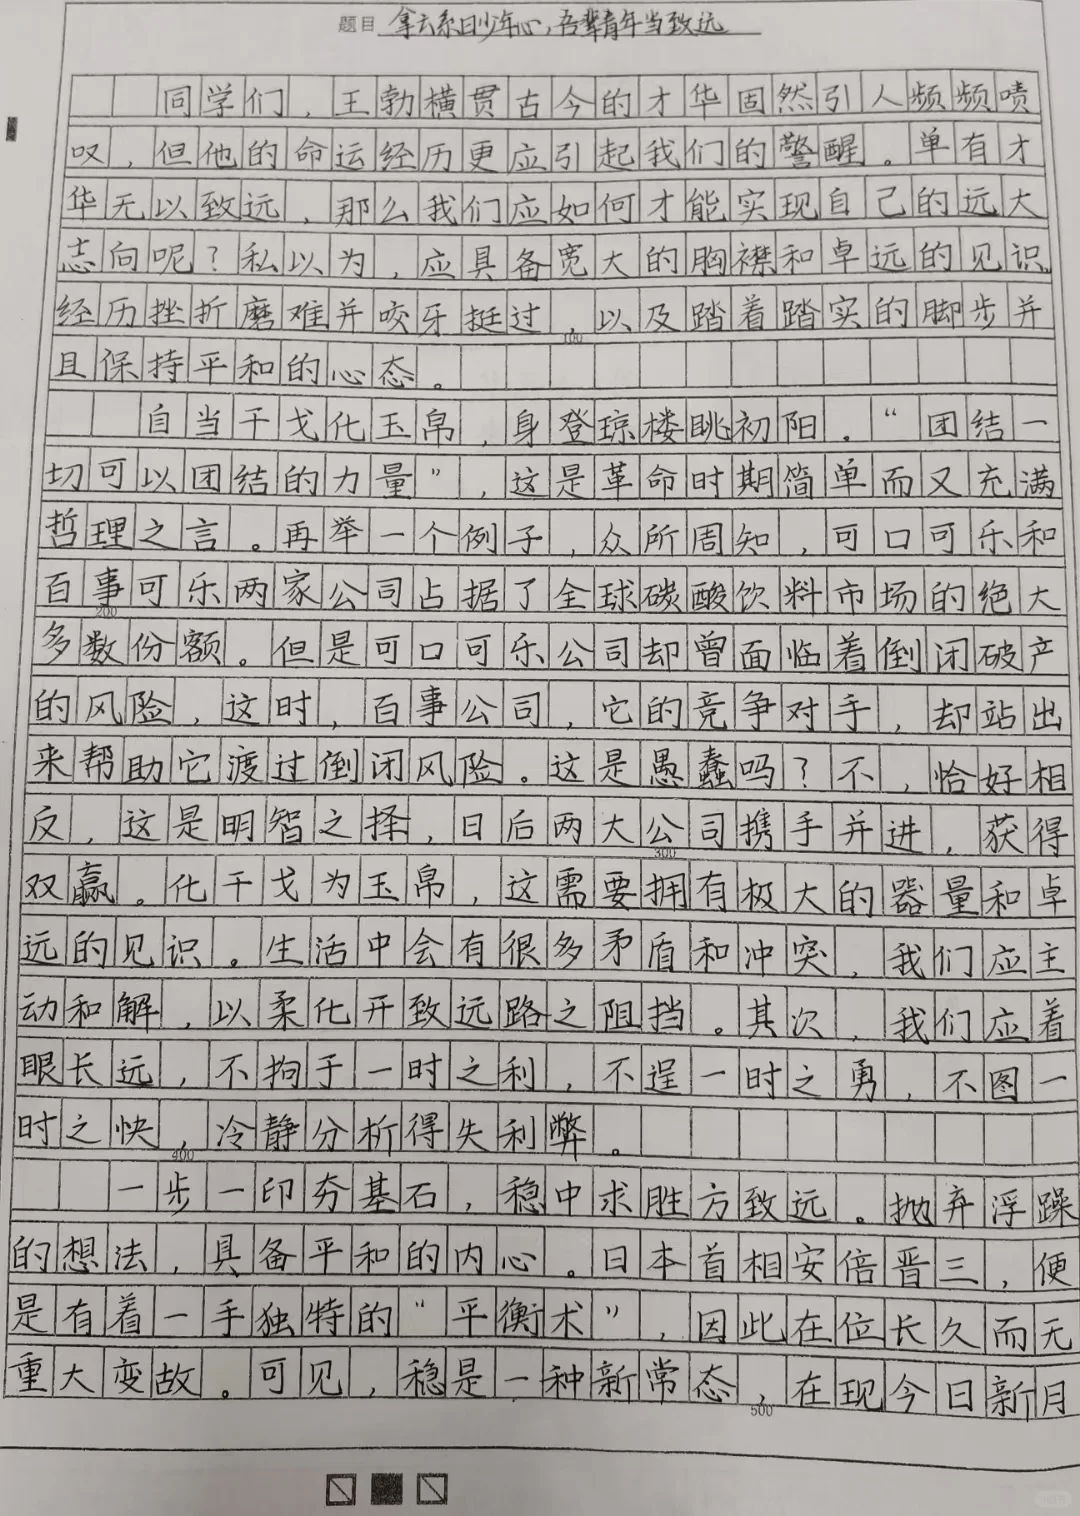 题目 拿云系日少年心，吾辈青年当致远
同学们，王勃横贯古今的才华固然引人频频啧
叹，但他的命运经历更应引起我们的警醒。单有才
华无以致远，那么我们应如何才能实现自己的远大
志向呢？私以为，应具备宽大的胸襟和卓远的见识
经历挫折磨难并咬牙挺过，以及踏着踏实的脚步并
100
且保持平和的心态。
自当干戈化玉帛，身登琼楼眺初阳。“团结一
切可以团结的力量”，这是革命时期简单而又充满
哲理之言。再举一个例子，众所周知，可口可乐和
百事可乐两家公司占据了全球碳酸饮料市场的绝大
200
多数份额。但是可口可乐公司却曾面临着倒闭破产
的风险，这时，百事公司，它的竞争对手，却站出
来帮助它渡过倒闭风险。这是愚蠢吗？不，恰好相
反，这是明智之择，日后两大公司携手并进，获得
300
双赢。化干戈为玉帛，这需要拥有极大的器量和卓
远的见识。生活中会有很多矛盾和冲突，我们应主
动和解，以柔化开致远路之阻挡。其次，我们应着
眼长远，不拘于一时之利，不逞一时之勇，不图一
时之快，冷静分析得失利弊。
400
一步一印夯基石，稳中求胜方致远。抛弃浮躁
的想法，具备平和的内心。日本首相安倍晋三，便
是有着一手独特的“平衡术”，因此在位长久而无
重大变故。可见，稳是一种新常态，在现今日新月
500